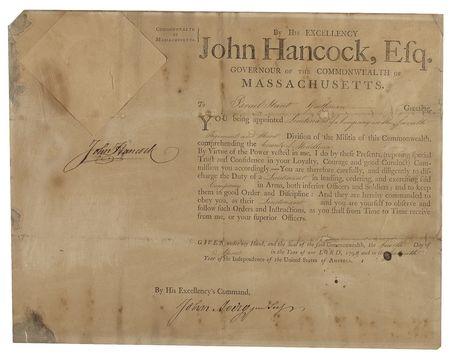 COMMONWEALTH
OF
MASSACHUSETTS.
BY HIS EXCELLENCY
John Hancock, Esq.
GOVERNOUR OF THE COMMONWEALTH OF
MASSACHUSETTS.
To Gentleman Greeting.
YOU being appointed Lieutenant of a Company in the
Regiment Division of the Militia of this Commonwealth,
comprehending the County of
By Virtue of the Power vested in me, I do by these Presents, (reposing special
Trust and Confidence in your Loyalty, Courage and good Conduct) Com-
mission you accordingly:—You are therefore carefully, and diligently to dis-
charge the Duty of a Lieutenant in leading, ordering, and exercising said
Company in Arms, both inferior Officers and Soldiers; and to keep
them in good Order and Discipline: And they are hereby commanded to
obey you, as their Lieutenant and you are yourself to observe and
follow such Orders and Instructions, as you shall from Time to Time receive
from me, or your superior Officers.
John Hancock
GIVEN under my Hand, and the Seal of the said Commonwealth, the Day of
in the Year of our LORD, and in the
Year of the Independence of the United States of AMERICA.
By His Excellency's Command,
John Avery jun Secy